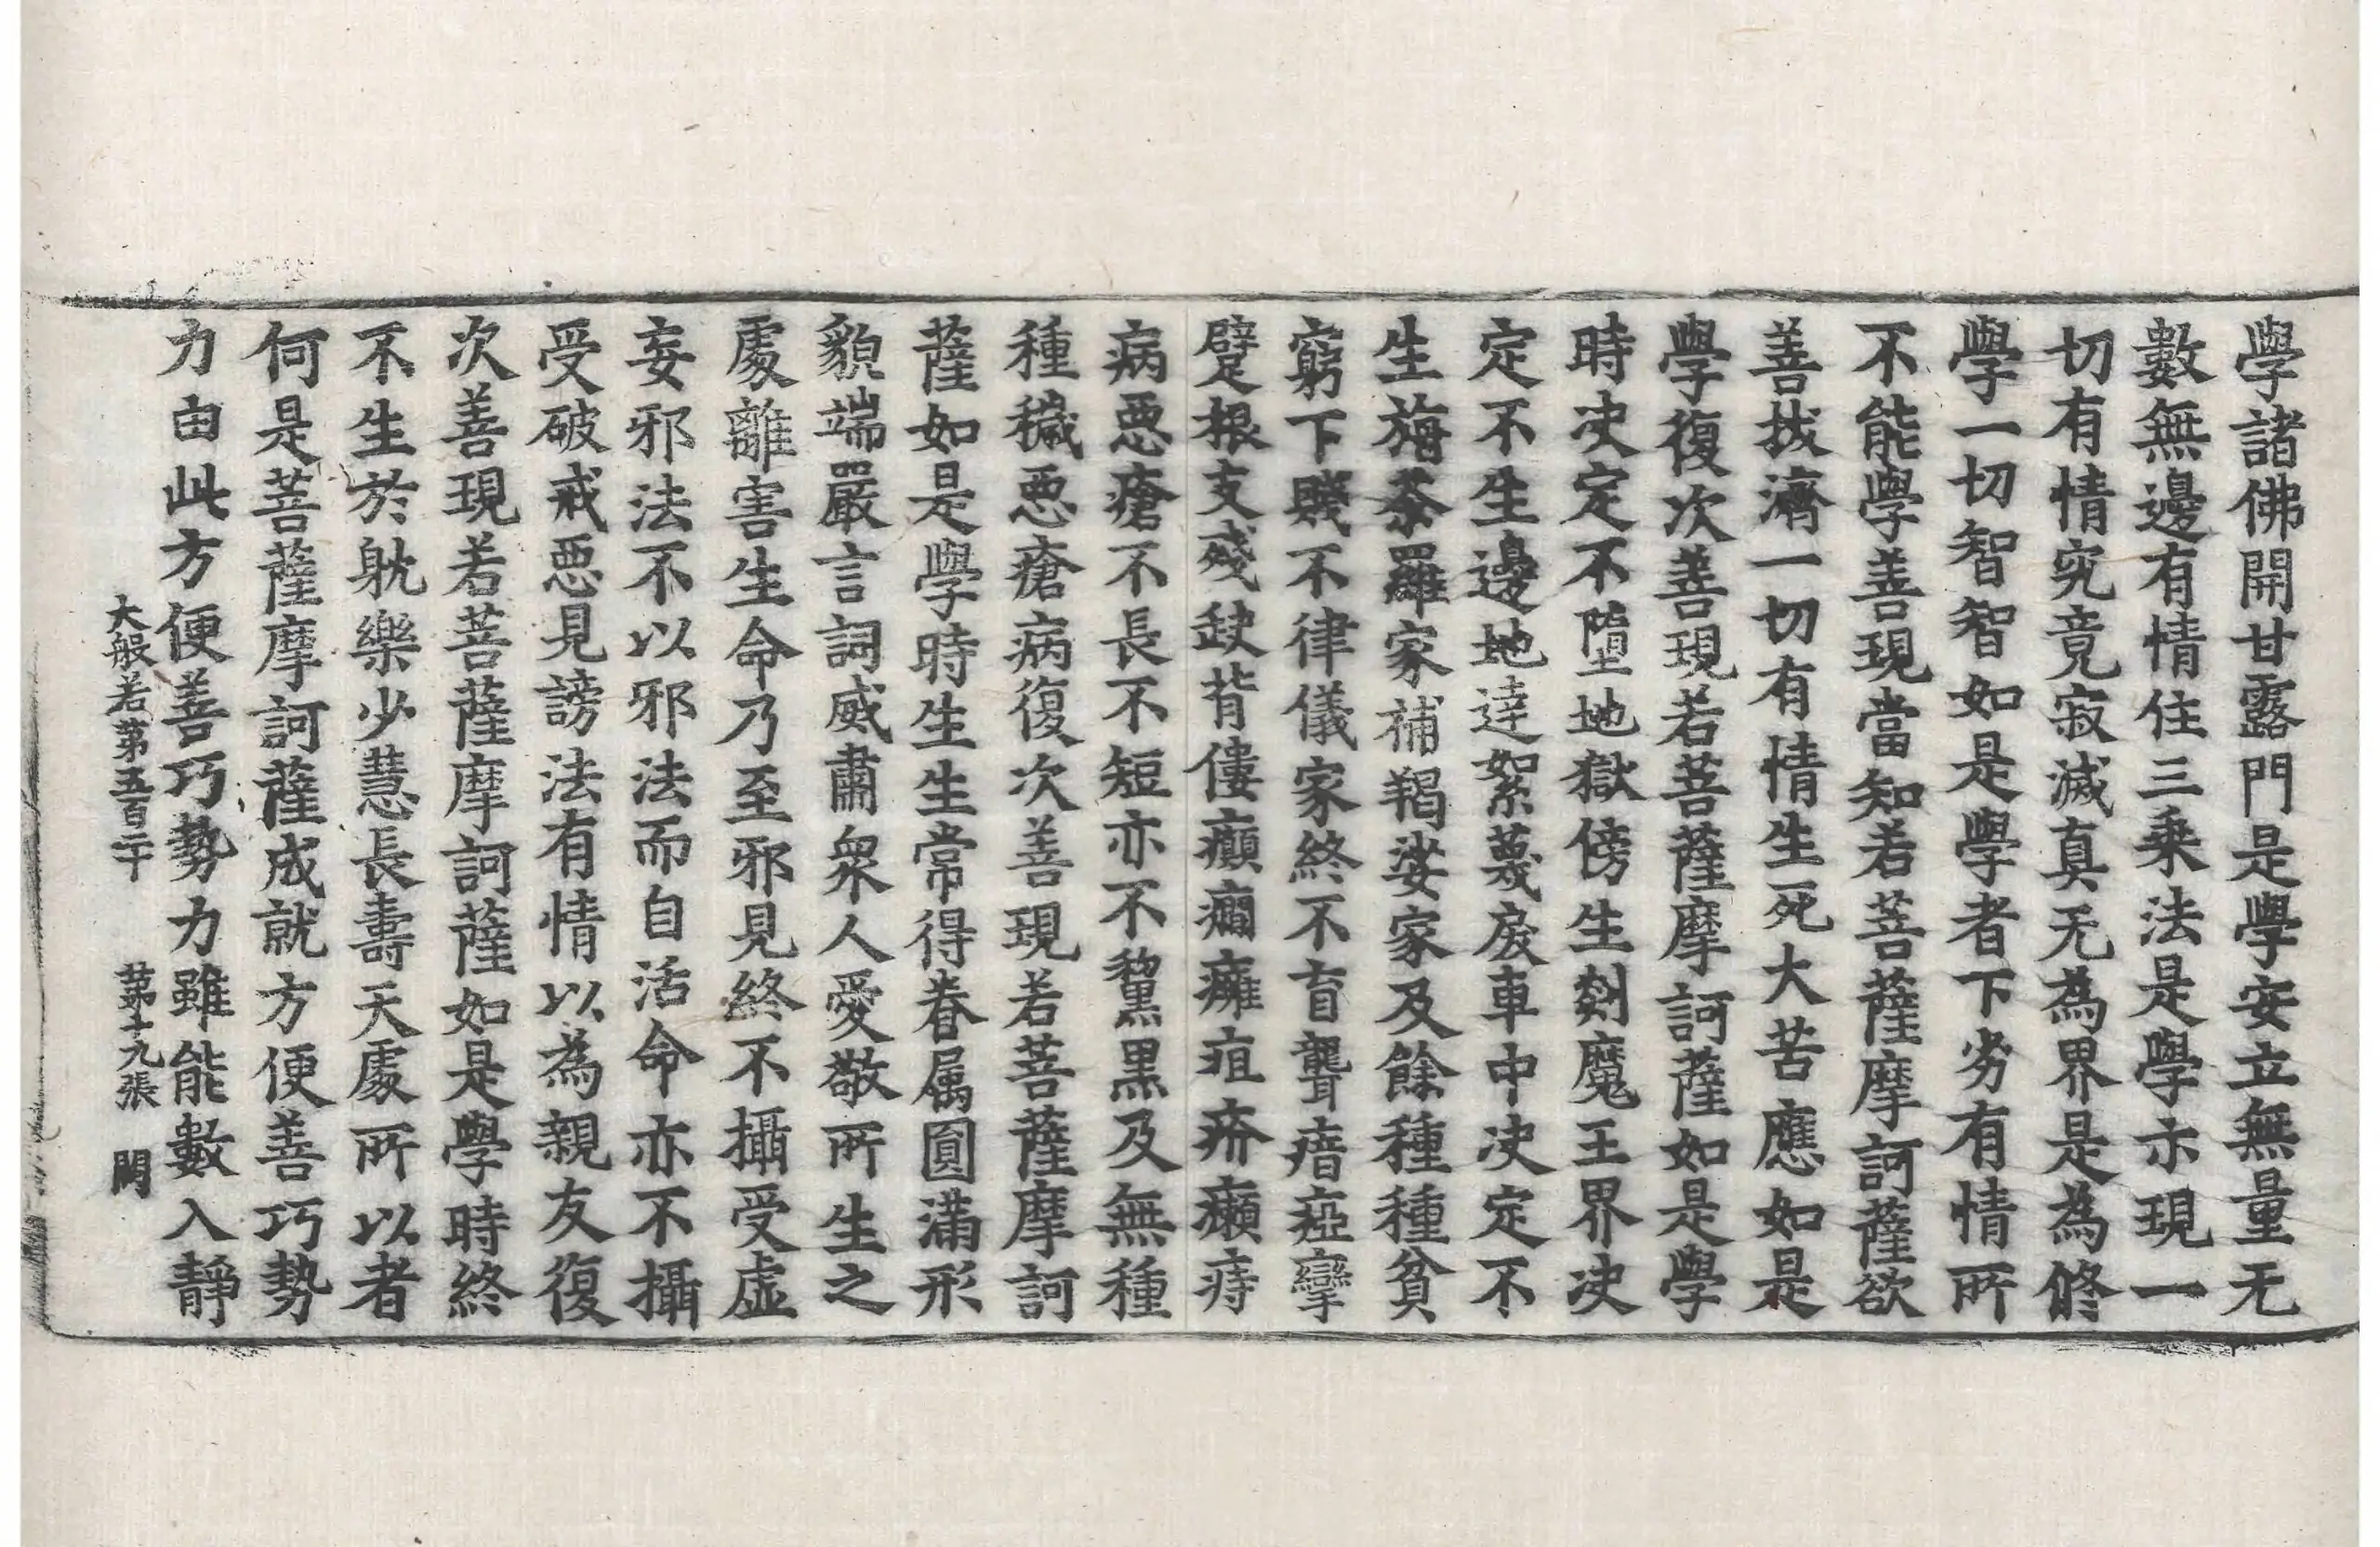 學諸佛開甘露門是學安立無量无
數無邊有情住三乘法是學示現一
切有情究竟寂滅真无為界是為修
學一切智智如是學者下劣有情所
不能學善現當知若菩薩摩訶薩欲
善拔濟一切有情生死大苦應如是
學復次善現若菩薩摩訶薩如是學
時决定不墮地獄傍生剡魔王界决
定不生邊地達絮蔑戾車中决定不
生旃荼羅家補羯娑家及餘種種貧
窮下賤不律儀家終不盲聾瘖瘂攣
躄根支殘缺背僂癲癇癰疽疥癩痔
病惡瘡不長不短亦不黧黑及無種
種穢惡瘡病復次善現若菩薩摩訶
薩如是學時生生常得眷属圓滿形
貌端嚴言詞威肅衆人愛敬所生之
處離害生命乃至邪見終不攝受虛
妄邪法不以邪法而自活命亦不攝
受破戒惡見謗法有情以為親友復
次善現若菩薩摩訶薩如是學時終
不生於躭樂少慧長壽天處所以者
何是菩薩摩訶薩成就方便善巧勢
力由此方便善巧勢力雖能數入靜
大般若第五百二十 第十九張 闕